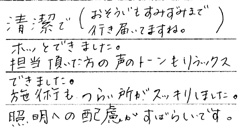 清潔で(おそうじもすみずみまで
行き届いてますね。)
ホッとできました。
担当頂いた方の声のトーンもリラックス
できました。
施術も つらい所がスッキリしました。
照明への配慮がすばらしいです。